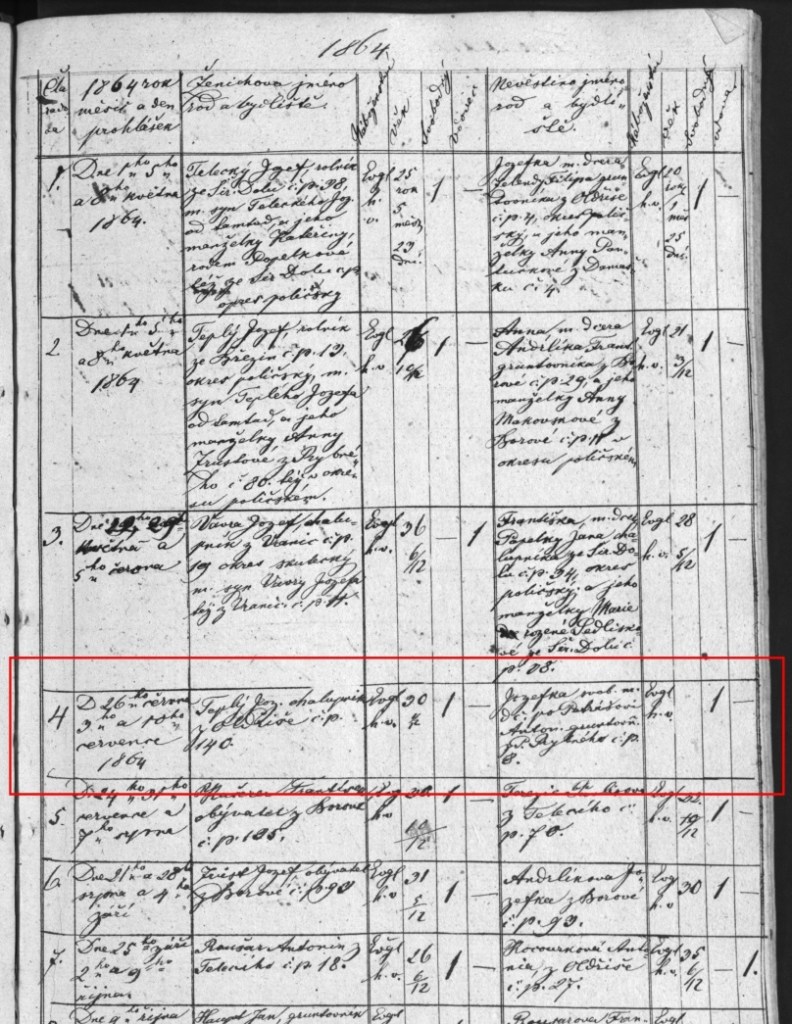 1864
1864 rok
měsíc a den
prohlášek
Ženichovo jméno
rod a bydliště.
Náboženství
věk
svobodný
vdovec
Nevěstino jméno
rod a bydliště.
Náboženství
věk
svobodná
vdova
1.
Dne 1ho 5ho
a 8ho května
1864.
Telecký Jozef, rolník
ze Sir. Dolu č.p. 98,
m. syn Teleckého Joz.
od tamtud, a jeho
manželky Kateřiny,
též ze Sir Dolu č.p.
okres poličský
Evgl
h.
v.
25
rok
5
měs.
23
dní
1 —
Jozefka m. dcera
Filipa
z Oldřiše
č.p. 4, okres polič-
ský, a jeho man-
želky Anny
Evgl
h.
v.
20
rok
1
měs
25
dní
1 —
2
Dne 1ho 5ho
a 8ho května
1864
Teplý Jozef rolník
ze Březin č.p. 13.
okres poličský, m.
syn Teplého Jozefa
od tamtud, a jeho
manželky Anny
č 80. též v okre-
su poličském.
Evgl
h.v.
1 —
Anna, m. dcera
Andrlíka Frant.
gruntovníka z Bo-
rové č.p. 29, a jeho
manželky Anny
Makovskové z
Borové č.p. 11 v
okresu poličském
Evgl
h.v.
21
3/12
1 —
3.
Dne 29ho
května a
5ho června
Vávra Jozef, chalu-
pník z Vranic č.p.
19 okres skutečský
m. syn Vávry Jozefa
též z Vranic č.p. 11.
Evgl
h.v.
36
6/12
— 1
Františka, m. dcera
Papelky Jana cha-
lupníka ze Sir. Do-
lu č.p. 94, okres
poličský, a jeho
manželky Marie
rozené Sedlisko-
vé ze Sir. Dolu č
p. 78.
Evgl
h.v.
28
5/12
1 —
4
D 26ho června
3ho a 10ho
července
1864
Teplý Joz. chalupník
z Oldřiše č.p.
140.
Evgl
h.v.
30
1 —
Jozefka svob. m.
dc. po
Anton. gruntovn.
č.p.
8.
Evgl
h.v.
1 —
5.
D. 24ho 31ho
července a
7ho srpna
František
obyvatel z Borové
č.p. 185.
Evg
h.v
30.
10/12
1 —
z Telecího č.
p. 70.
Evgl
h.v.
10/12
1 —
6.
Dne 21ho a 28ho
srpna a 4ho
září
Jozef, obyvatel
z Borové č.p. 93
Evg
h.v
31
5/12
1 —
Andrlíkova Jo-
zefka z Borové
č.p. 93.
Evg
h.v.
30
1 —
7.
Dne 25ho září
2ho a 9ho
října
Roušar Antonín z
Telecího č.p. 18.
Evgl
h.v.
26
6/12
1 —
Kocourková Anto-
nia, z Oldřiše
č.p. 27.
Evgl
h.v.
35
6/12
— 1.
Dne 9ho října
Jan, gruntovník
Evgl
Rousarova Fran-
Evgl